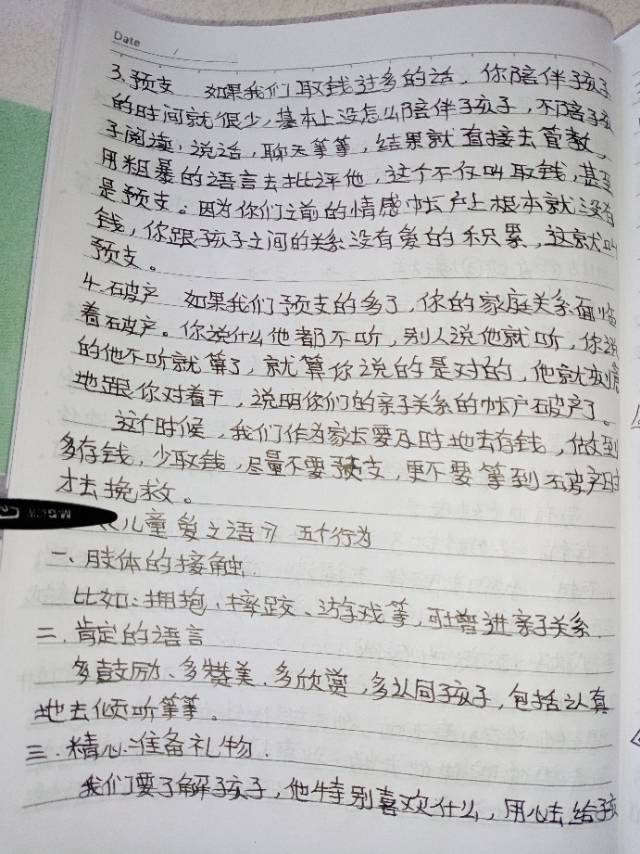 Date
3.预支 如果我们取钱过多的话，你陪伴孩子
的时间就很少，基本上没怎么陪伴子孩子，不陪孩
子阅读，说话，聊天等等，结果就直接去管教。
用粗暴的语言去批评他，这个不仅叫取钱，甚至
是预支。因为你们之前的情感帐户上根本就没有
钱，你跟孩子之间的关系没有爱的积累，这就叫
预支。
4.破产 如果我们预支的多了，你的家庭关系面临
着破产。你说什么他都不听，别人说他就听，你说
的他不听就算了，就算你说的是对的，他就故意
地跟你对着干，说明你们的亲子关系的帐户破产了。
这个时候，我们作为家长要及时地去存钱，做到
多存钱，少取钱，尽量不要预支，更不要等到破产时
才去挽救。
儿童爱之语 五个行为
一、肢体的接触.
比如：拥抱、摔跤、游戏等，可增进亲子关系.
二.肯定的语言
多鼓励、多赞美.多欣赏，多认同孩子，包括认真
地去倾听等等。
三.精心准备礼物.
我们要了解孩子，他特别喜欢什么，用心去给孩
M&G